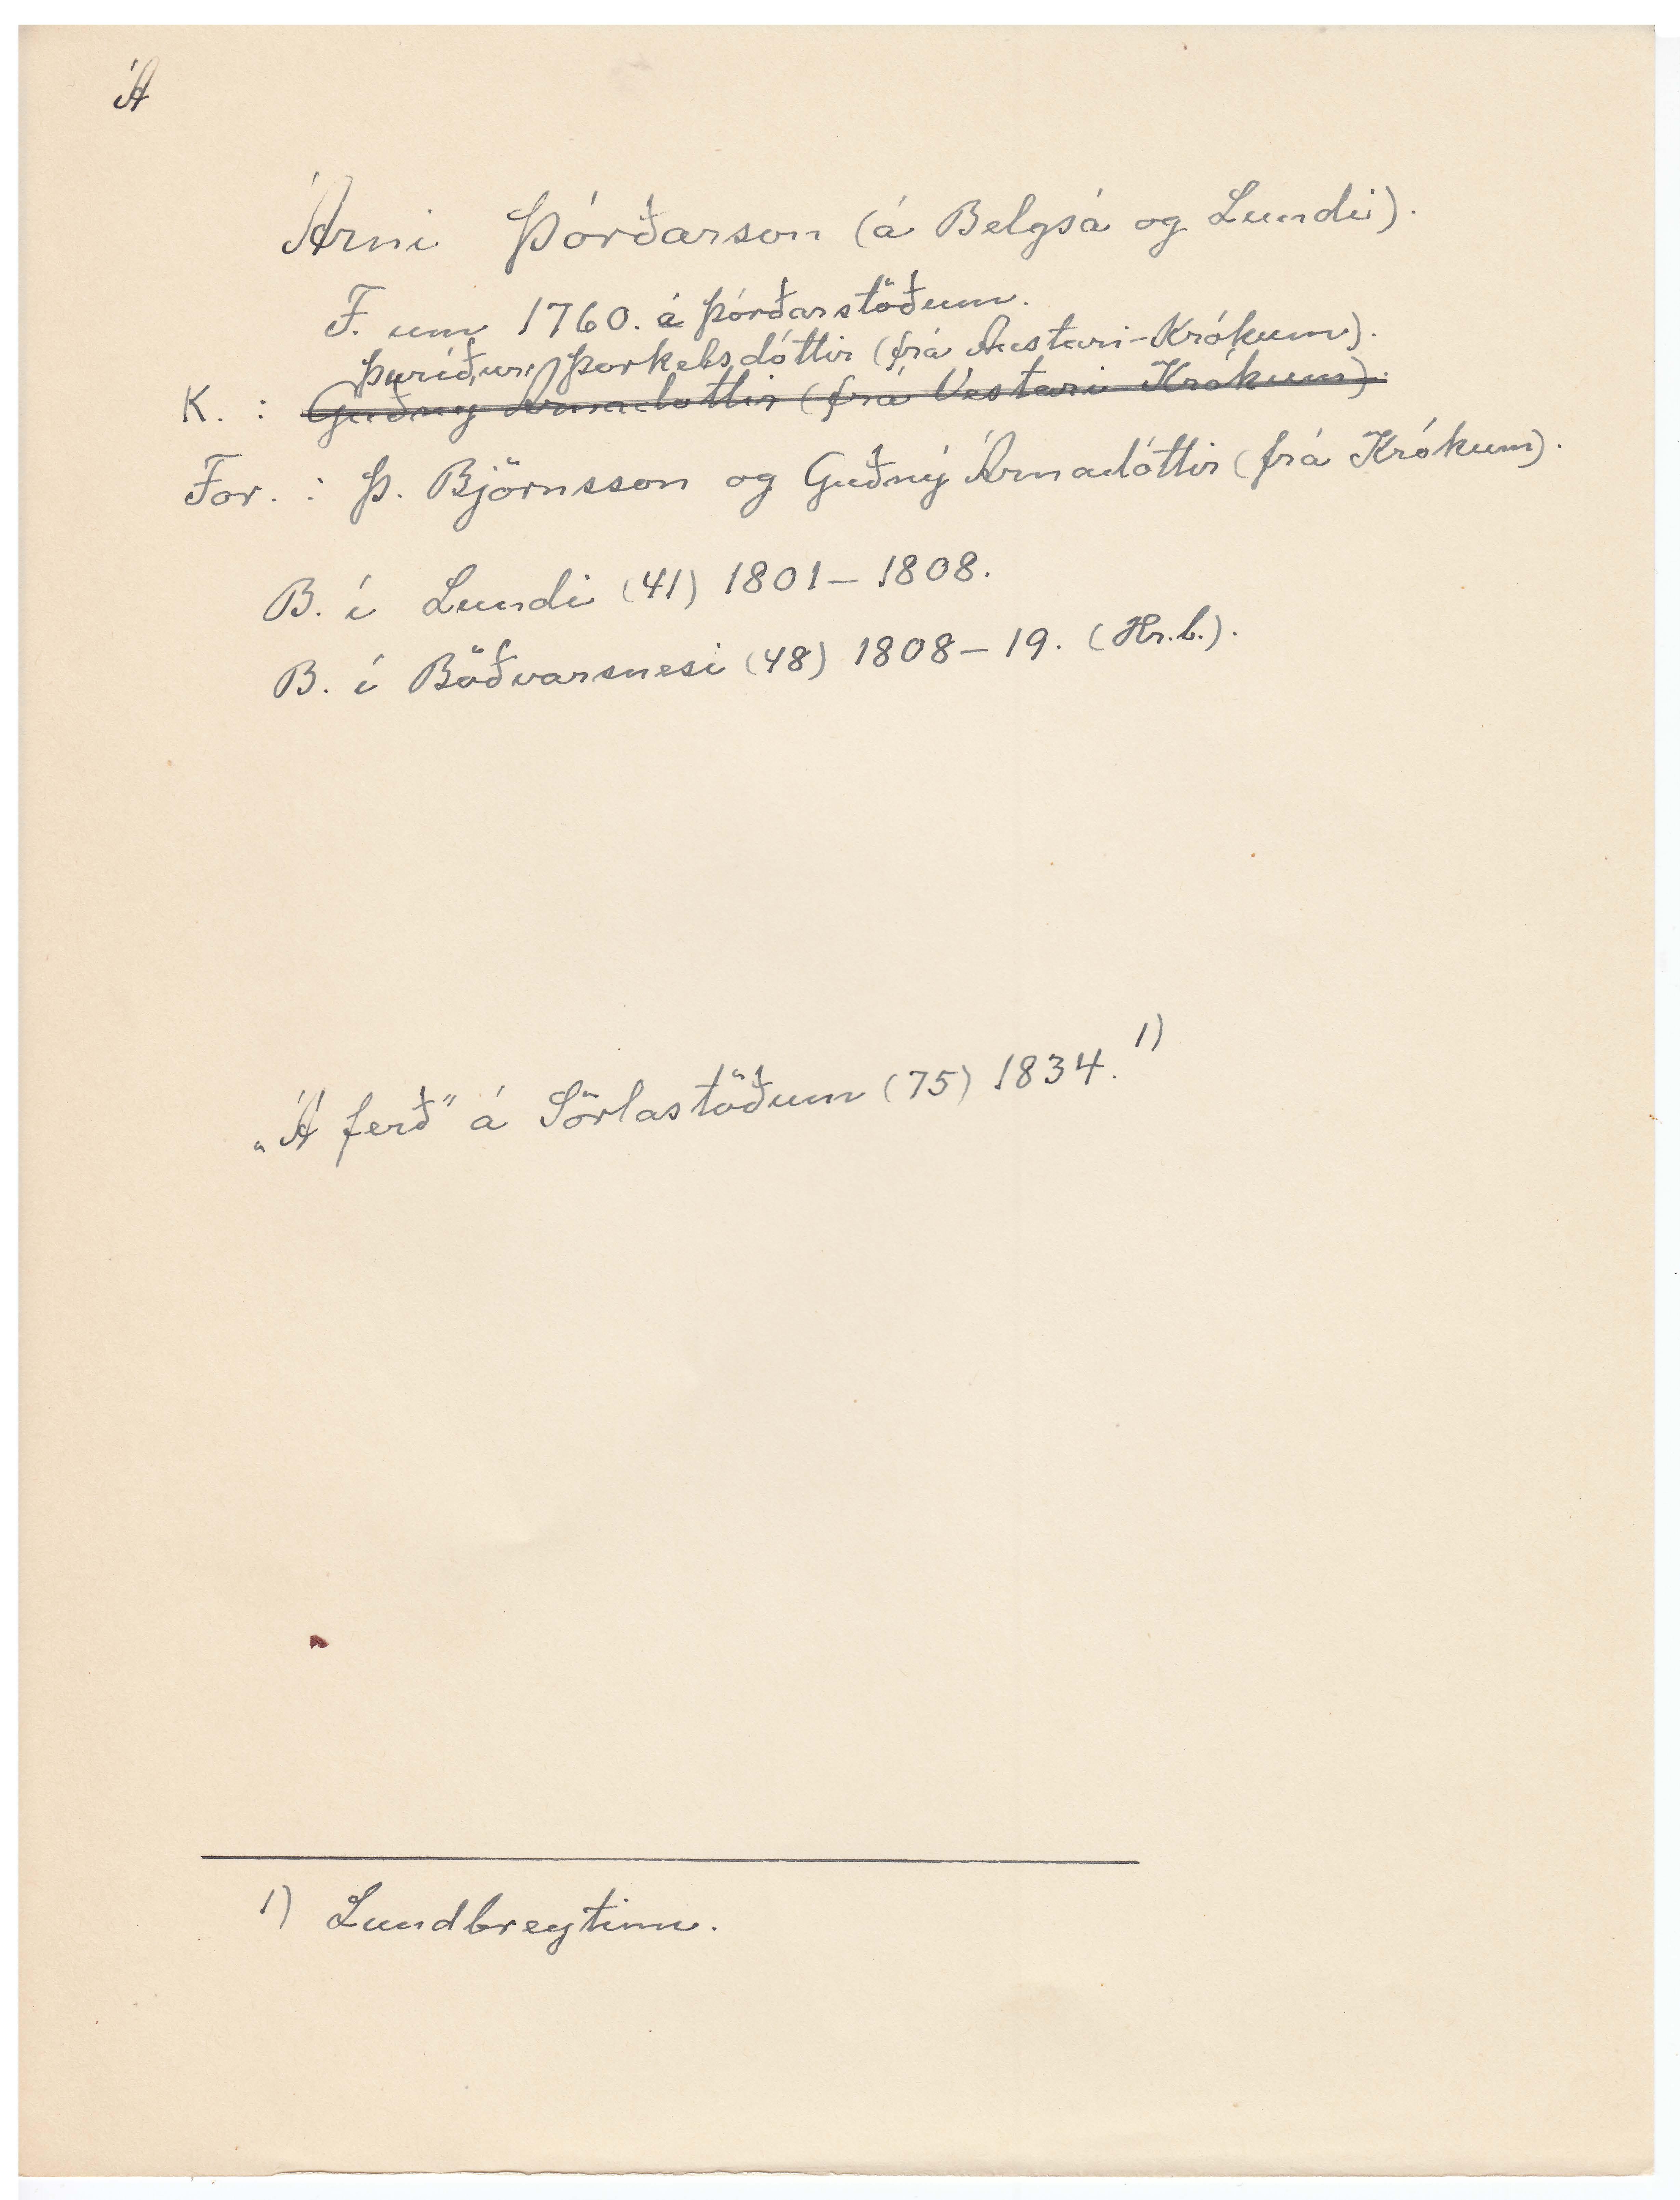 Á
Árni Þórðarson (á Belgsá og Lundi).
F. um 1760. á Þórðarstöðum.
Þuríður Þorkelsdóttir (frá Austari-Krókum).
K. : Guðný Árnadóttir (frá Vestari-Krókum).
For. : Þ. Björnsson og Guðný Árnadóttir (frá Krókum).
B. í Lundi (41) 1801-1808.
B. í Böðvarsnesi (48) 1808-19. (Hr.b.).
„Á ferð" á Sörlastöðum (75) 1834. 1)
1) Lundbreytinn.